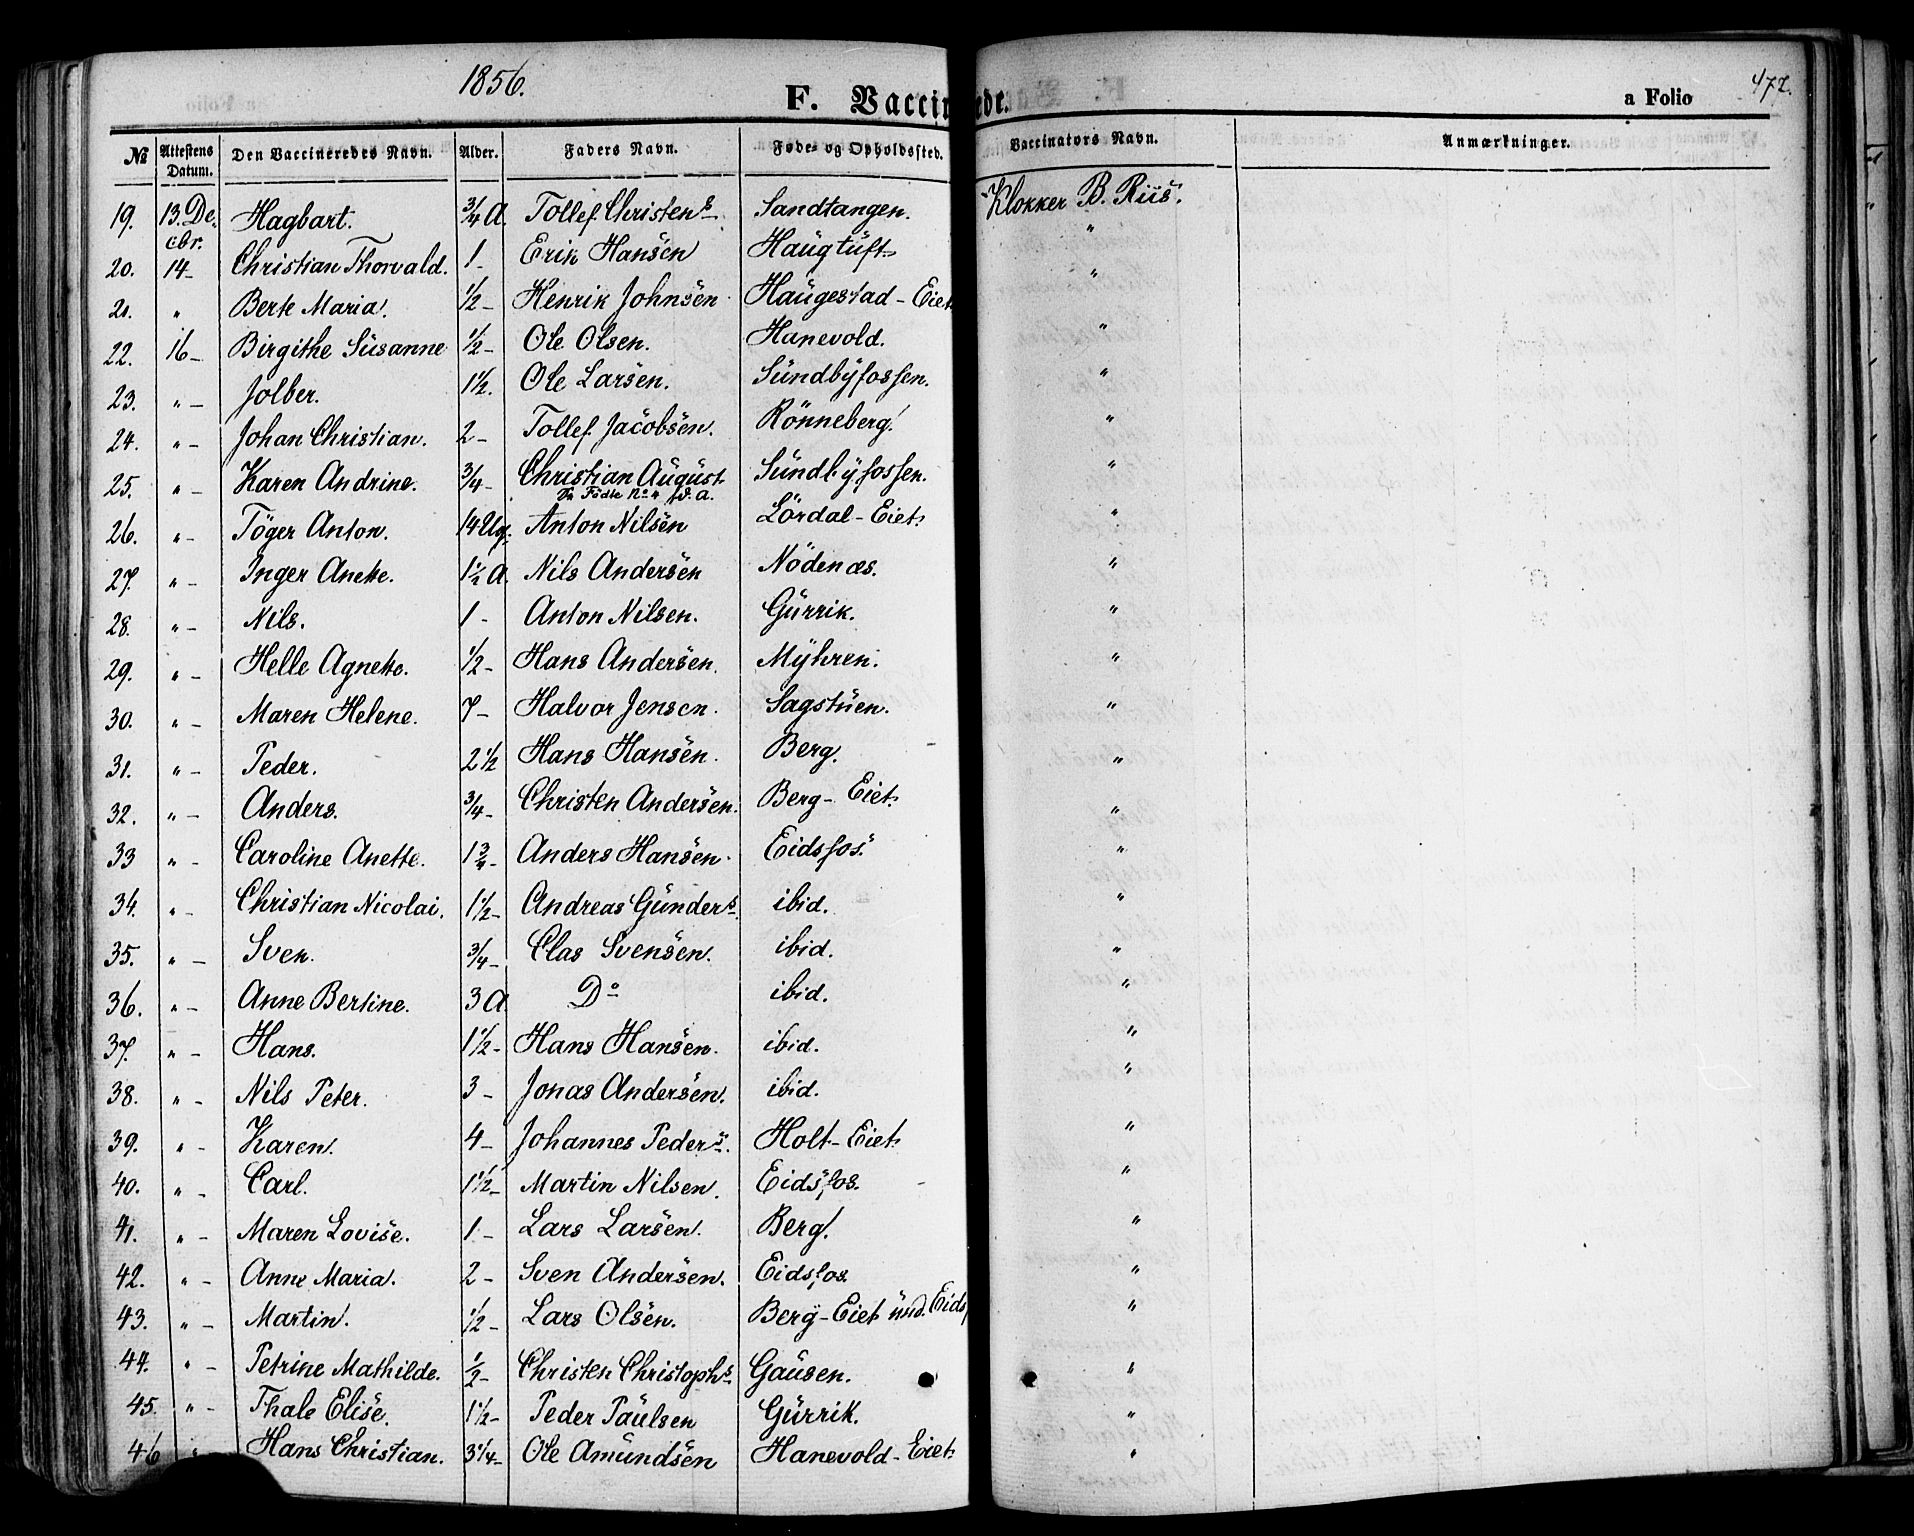 1856.
F. Vaccinerede.
a Folio 477.
№ Attestens Datum. Den Vaccineredes Navn. Alder. Faders Navn. Føde- og Opholdssted. Vaccinators Navn. Anmærkninger.
19. 13. Decbr. Hagbart. 3/4 A. Tollef Christens Sandtangen. Klokker B. Riis.
20. 14 - Christian Thorvald. 1 - Erik Hansen Haugtuft "
21. " Berte Maria. 1/2 - Henrik Johnsen Haugestad - Eiet "
22. 16 - Birgithe Susanne 1/2 - Ole Olsen. Hanevold. "
23. " - Jolber. 1 1/2. Ole Larsen. Sundbyfossen. "
24. " - Johan Christian. 2 - Tollef Jacobsen. Rönneberg. "
25. " - Karen Andrine. 3/4 - Christian August Sundbyfossen. "
Födte No 4 f. a.
26. " - Töger Anton. 14 Ug. Anton Nilsen Lördal - Eiet "
27. " - Inger Anette. 1 1/2 A. Nils Andersen Nödenæs. "
28. " - Nils. 1 - Anton Nilsen. Gurrik. "
29. " - Helle Agnette. 1/2 - Hans Andersen. Myhren. "
30. " - Maren Helene. 7 - Halvor Jensen. Sagstuen. "
31. " - Peder. 2 1/2 Hans Hansen. Berg. "
32. " - Anders. 3/4 - Christen Andersen. Berg - Eiet "
33 " - Caroline Anette. 1 3/4 - Anders Hansen. Eidsfos. "
34. " - Christian Nicolai. 1 1/2 - Andreas Gunders. ibid. "
35. " - Sven. 3/4 - Clas Svensen. ibid. "
36. " - Anne Bertine. 3 A. Do ibid. "
37. " - Hans. 1 1/2 - Hans Hansen. ibid. "
38. " - Nils Peter. 3 - Jonas Andersen. ibid. "
39. " - Karen. 4 - Johannes Peders. Holt - Eiet "
40. " - Carl. 1 1/2 - Martin Nilsen. Eidsfos. "
41. " - Maren Lovise. 1 - Lars Larsen. Berg. "
42. " - Anne Maria. 2 - Sven Andersen. Eidsfos. "
43. " - Martin. 1/2 - Lars Olsen. Berg - Eiet und. Eidsf "
44. " - Petrine Mathilde. 1/2 - Christen Christophs Gausen. "
45. " - Thale Elise. 1 1/2 - Peder Paulsen Gurrik. "
46 " Hans Christian. 3 1/4 - Ole Amundsen Hanevold - Eiet "